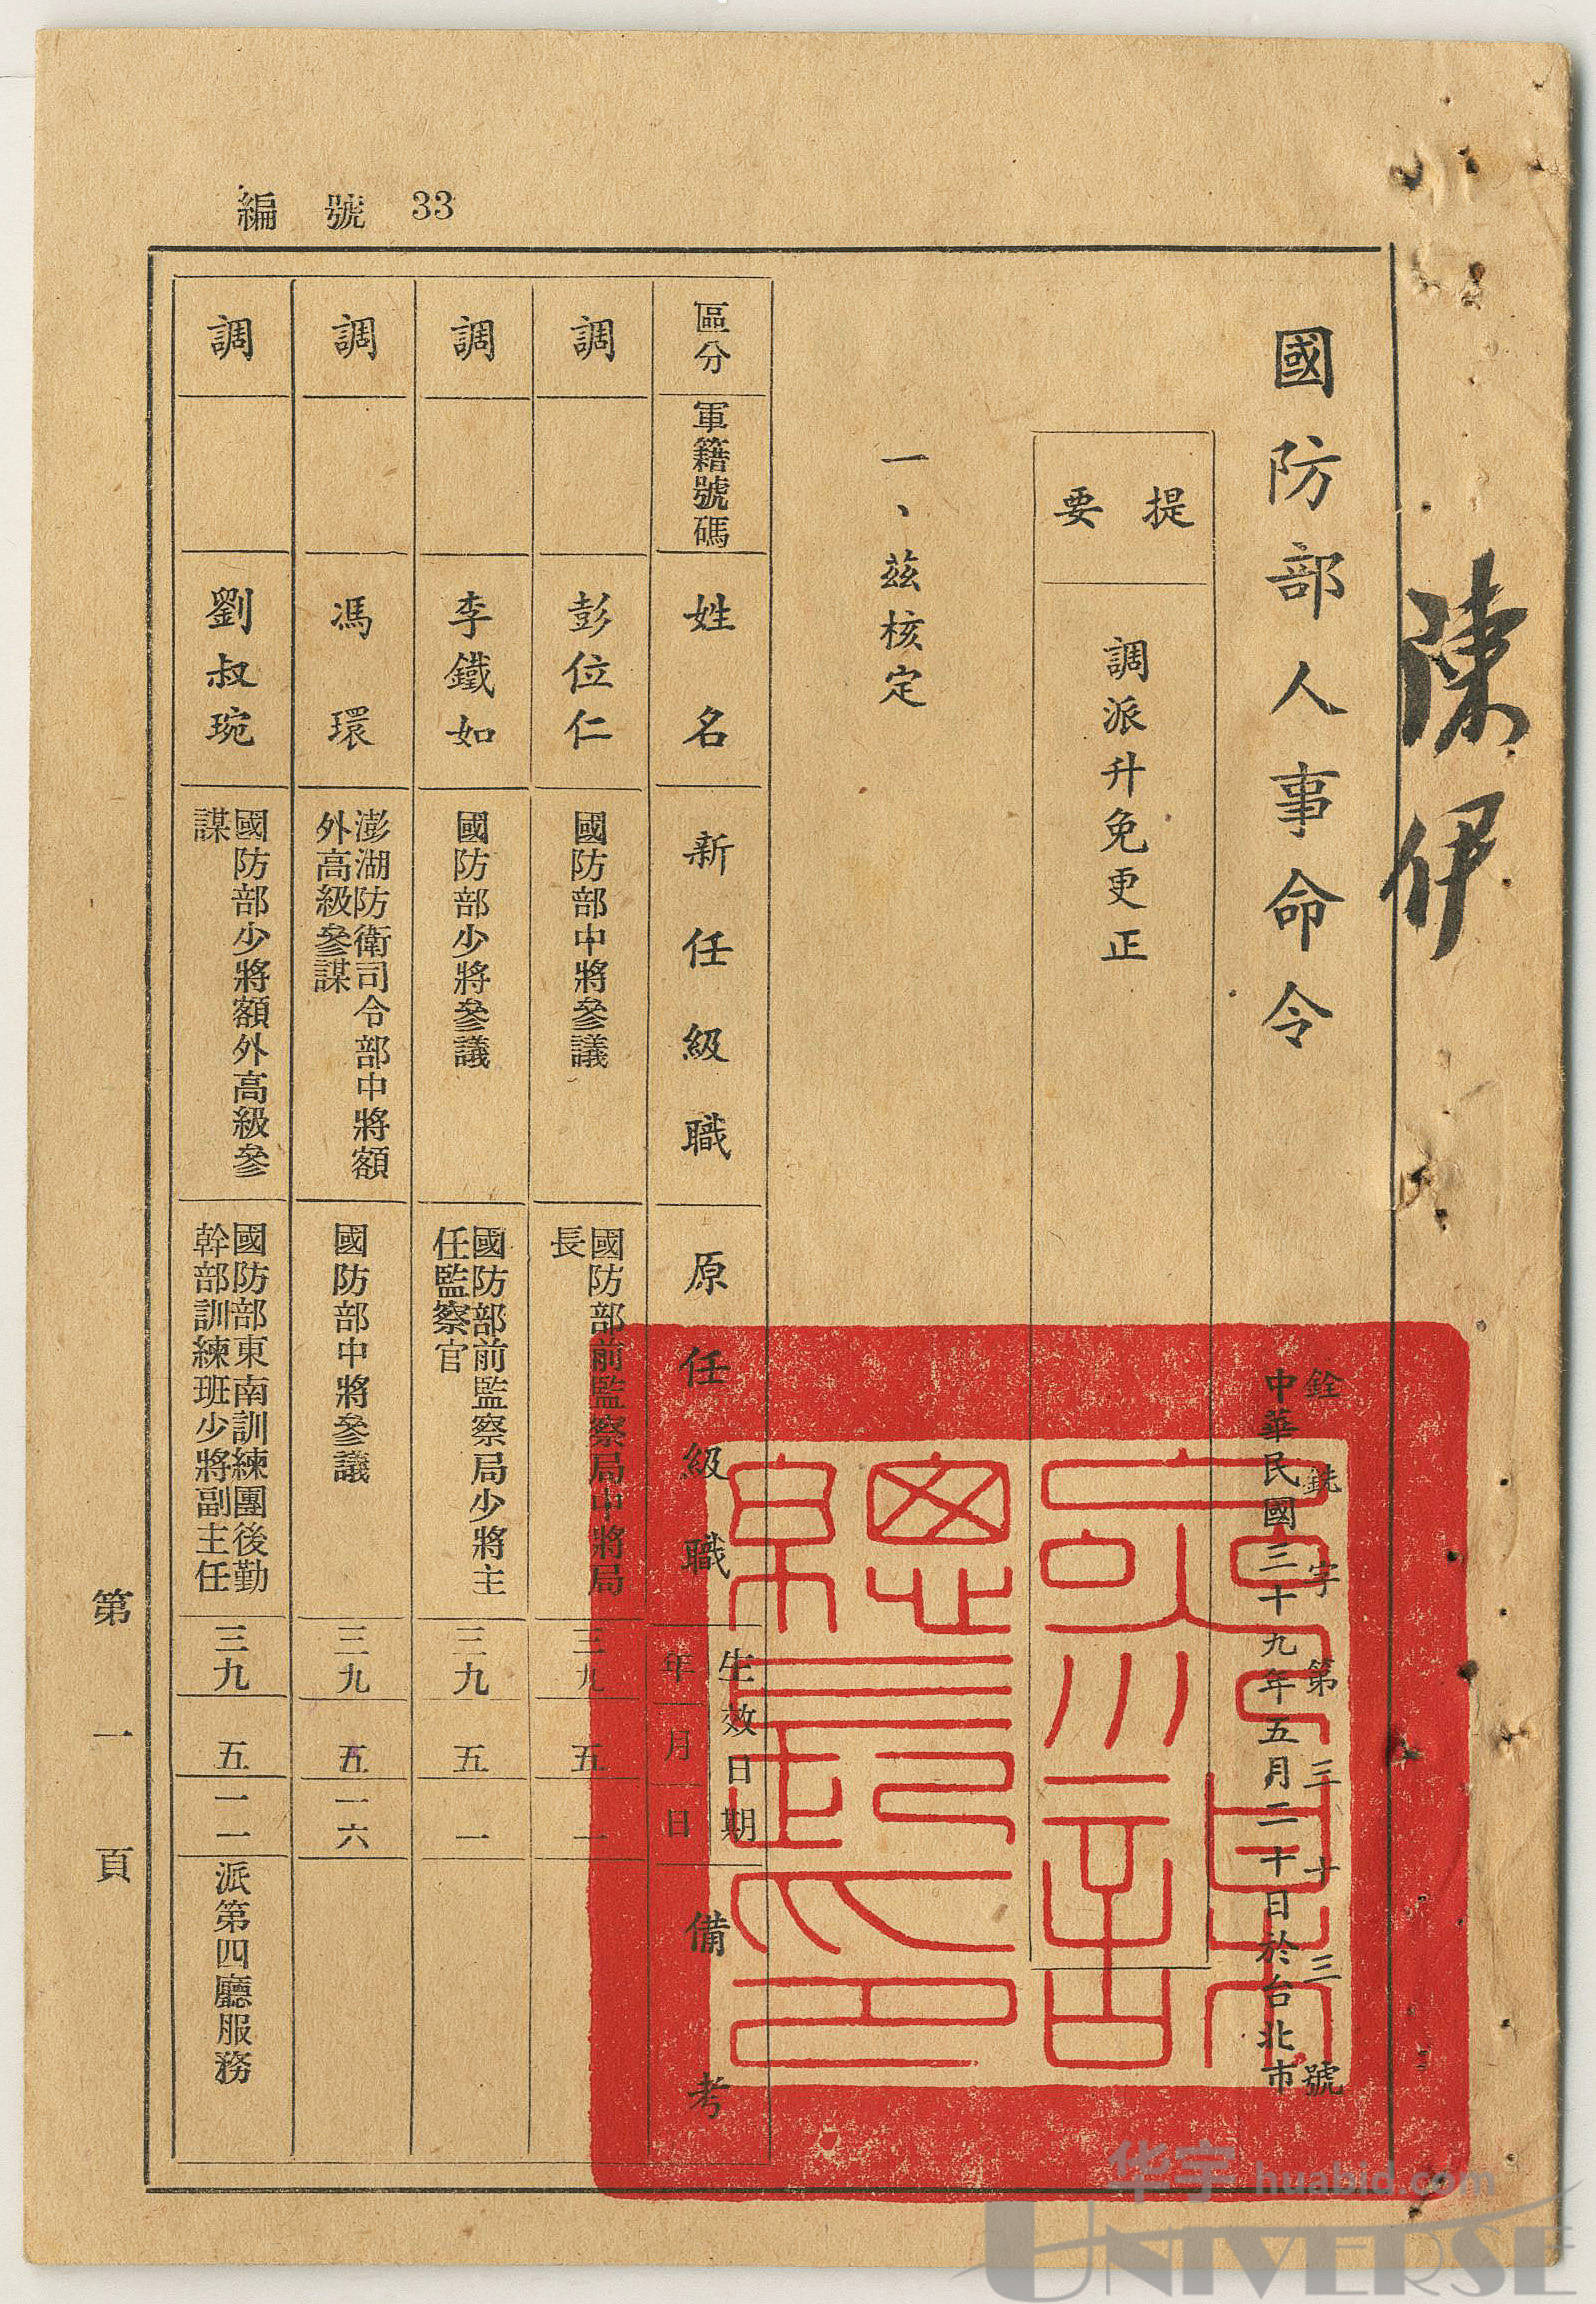 編號 33
陳伊
國防部人事命令
銓銑字第三十三號
中華民國三十九年五月二十日於台北市
提要
調派升免更正
一、茲核定
區分
軍籍號碼
姓名
新任級職
原任級職
生效日期
年
月
日
備考
調
彭位仁
國防部中將參議
國防部前監察局中將局
長
三九
五
一
調
李鐵如
國防部少將參議
國防部前監察局少將主
任監察官
三九
五
一
調
馮環
澎湖防衛司令部中將額
外高級參謀
國防部中將參議
三九
五
一六
調
劉叔琬
國防部少將額外高級參
謀
國防部東南訓練團後勤
幹部訓練班少將副主任
三九
五
一一
派第四廳服務
第一頁
华宇 huabid.com
UNIVERSE